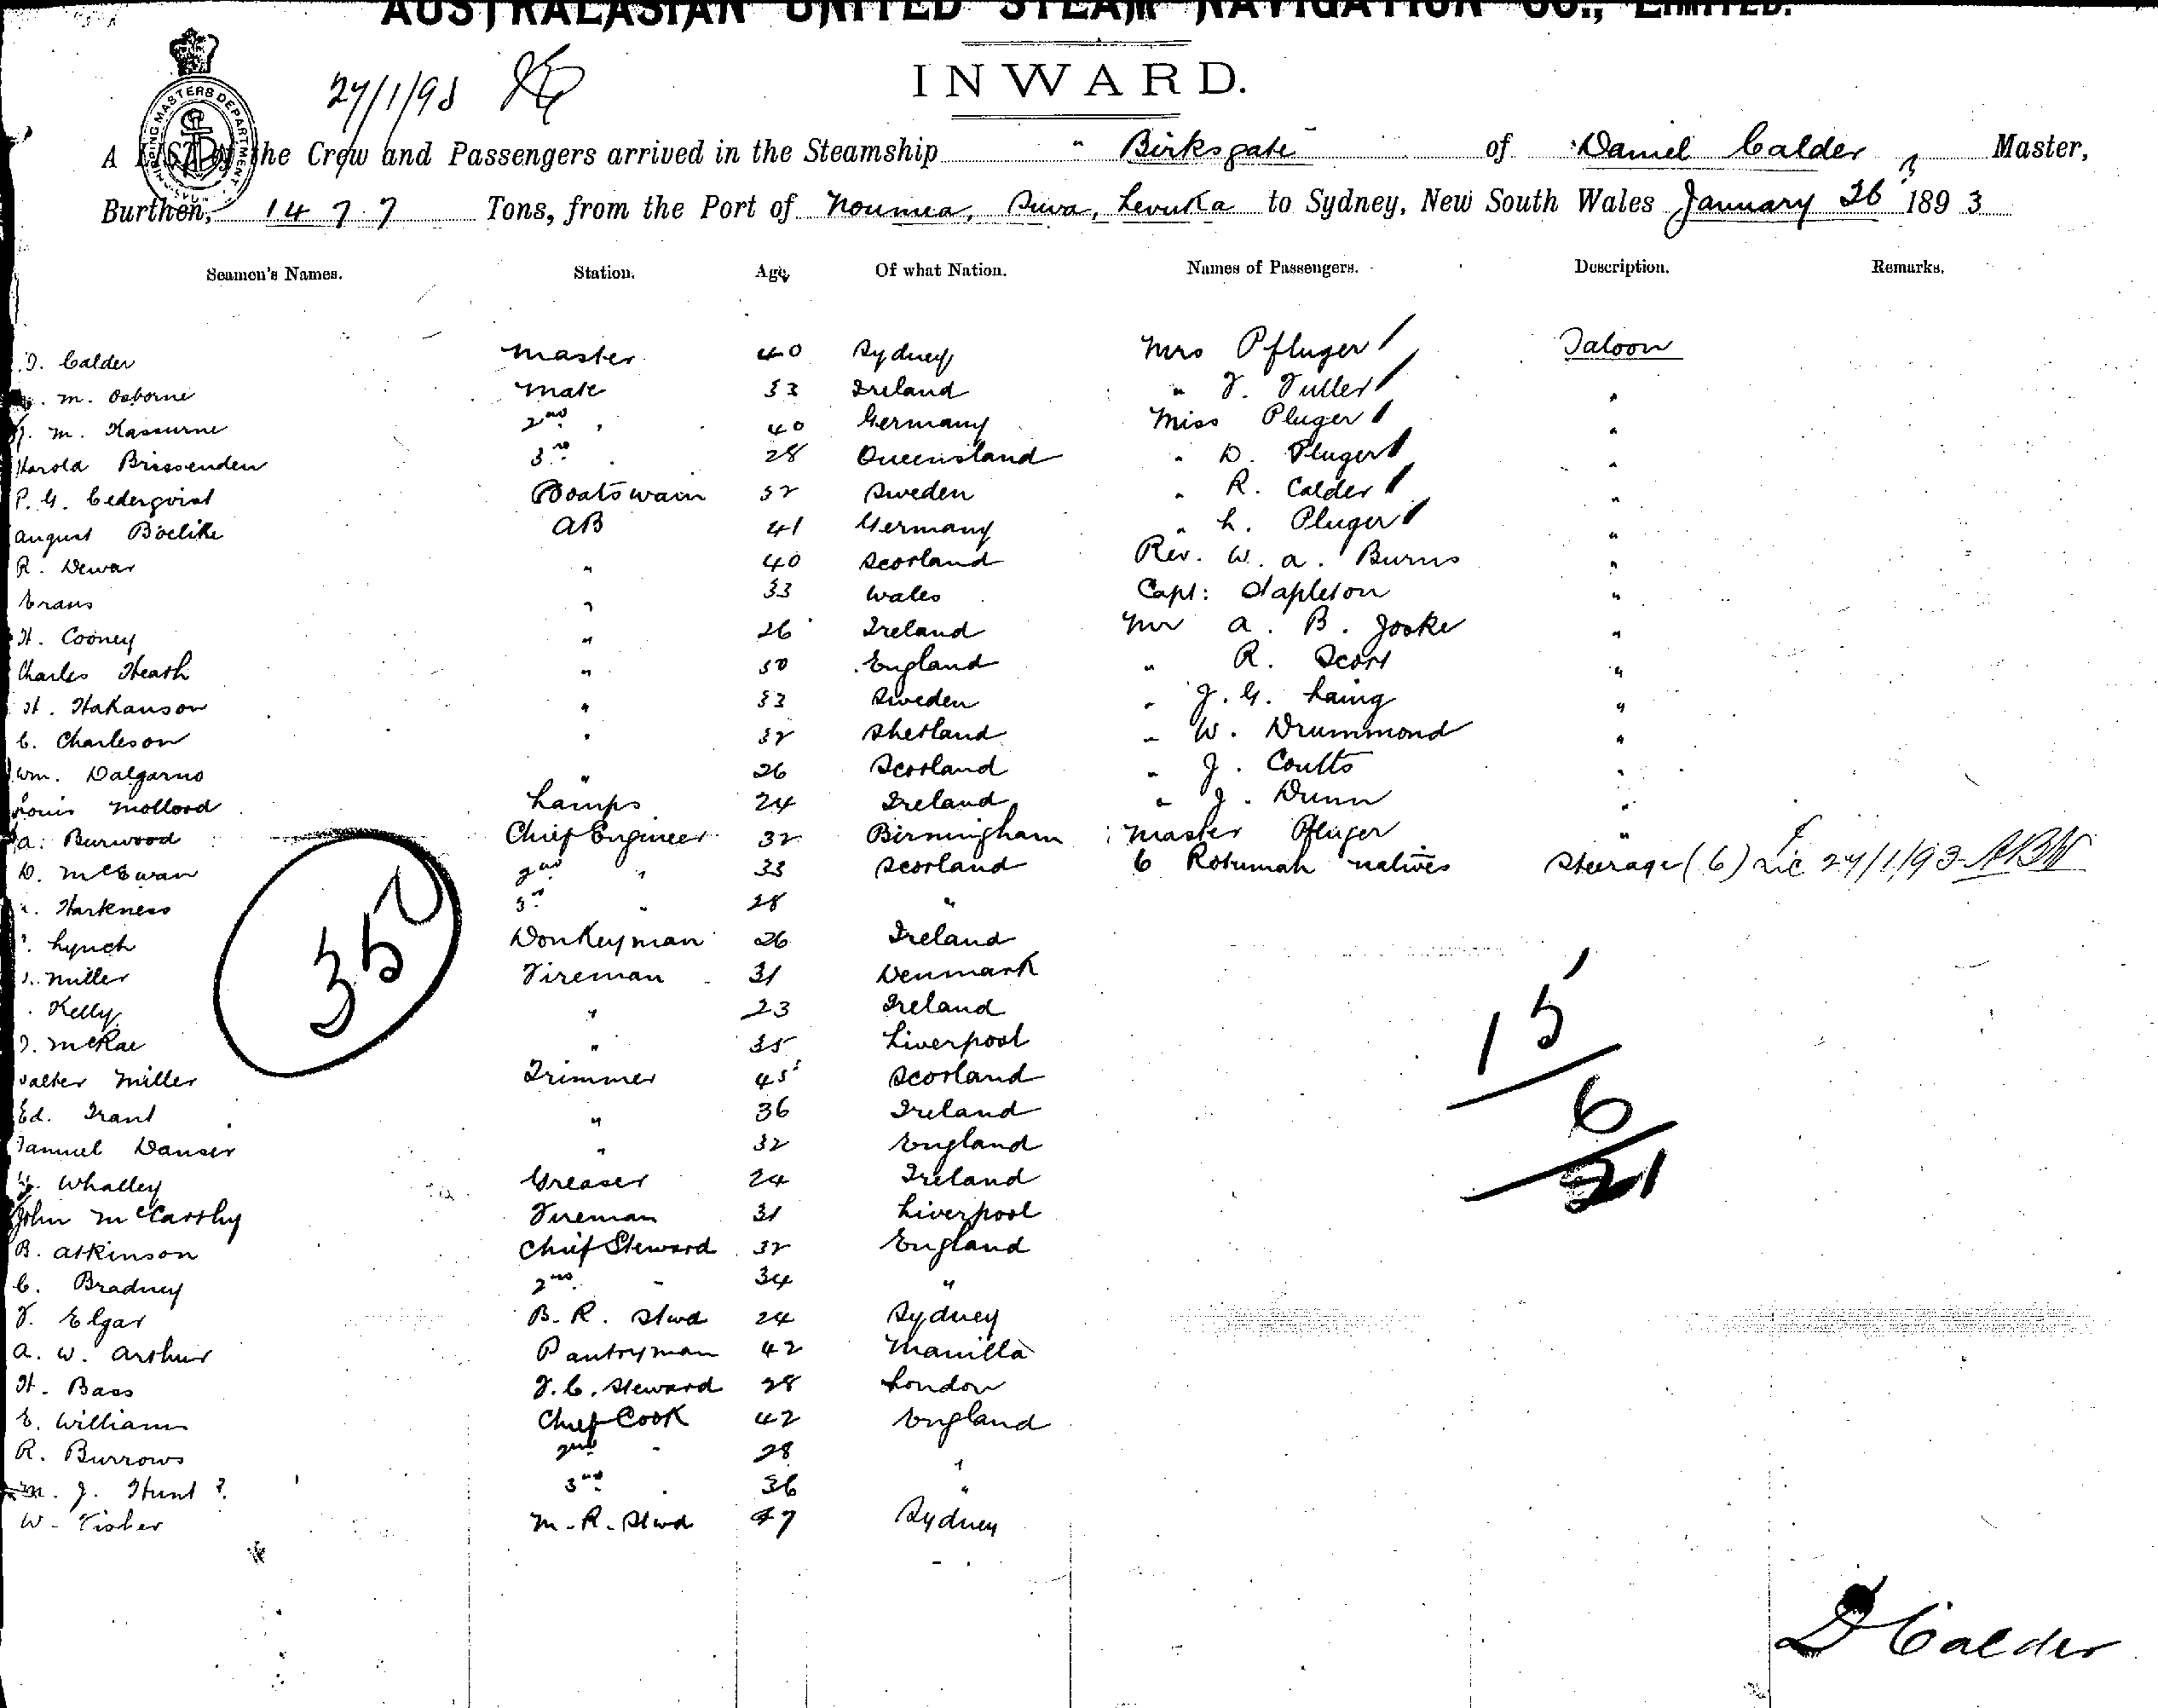 AUSTRALASIAN UNITED STEAM NAVIGATION CO., LIMITED.
INWARD.
27/1/93
SHIPPING MASTERS DEPARTMENT
A LIST of the Crew and Passengers arrived in the Steamship " Birksgate " of Daniel Calder Master,
Burthen, 1477 Tons, from the Port of Noumea, Suva, Levuka to Sydney, New South Wales January 26 1893
Seamen's Names. Station. Age. Of what Nation. Names of Passengers. Description. Remarks.
D. Calder Master 40 Sydney Mrs Pfluger Saloon
M. Osborne Mate 33 Ireland " F. Fuller "
M. 2nd " 40 Germany Miss Pluger "
Harold Brissenden 3rd " 28 Queensland " D. Pluger "
P. G. Cederqvist Boatswain 32 Sweden " R. Calder "
August Boelike AB 41 Germany " L. Pluger "
R. Dewar " 40 Scotland Rev. W. A. Burns "
Evans " 33 Wales Capt: Stapleton "
H. Cooney " 26 Ireland Mr A. B. Joske "
Charles Heath " 50 England " R. Scott "
H. Hakanson " 33 Sweden " J. G. Laing "
C. Charleson " 32 Shetland " W. Drummond "
Wm. Dalgarno " 26 Scotland " J. Coutts "
Louis Mollord Lamps 24 Ireland " J. Dunn "
A. Burwood Chief Engineer 32 Birmingham Master Pfluger "
D. McEwan 2nd " 33 Scotland 6 Rotumah natives Steerage (6) Lic 27/1/93 ABW
Harkness 3rd " 28 "
Lynch Donkeyman 26 Ireland
Miller Fireman 31 Denmark
Kelly " 23 Ireland
McRae " 35 Liverpool
Walter Miller Trimmer 45 Scotland
Ed. Trant " 36 Ireland
Samuel Danser " 32 England
Whalley Greaser 24 Ireland
John McCarthy Fireman 31 Liverpool
B. Atkinson Chief Steward 32 England
C. Bradney 2nd " 34 "
F. Elgar B. R. Stwd 24 Sydney
A. W. Arthur Pantryman 42 Manilla
H. Bass F. C. Steward 28 London
E. William Chief Cook 42 England
R. Burrows 2nd " 28 "
M. J. Hunt ? 3rd " 36 "
W. Fisher M. R. Stwd 47 Sydney
35
15
6
21
D Calder